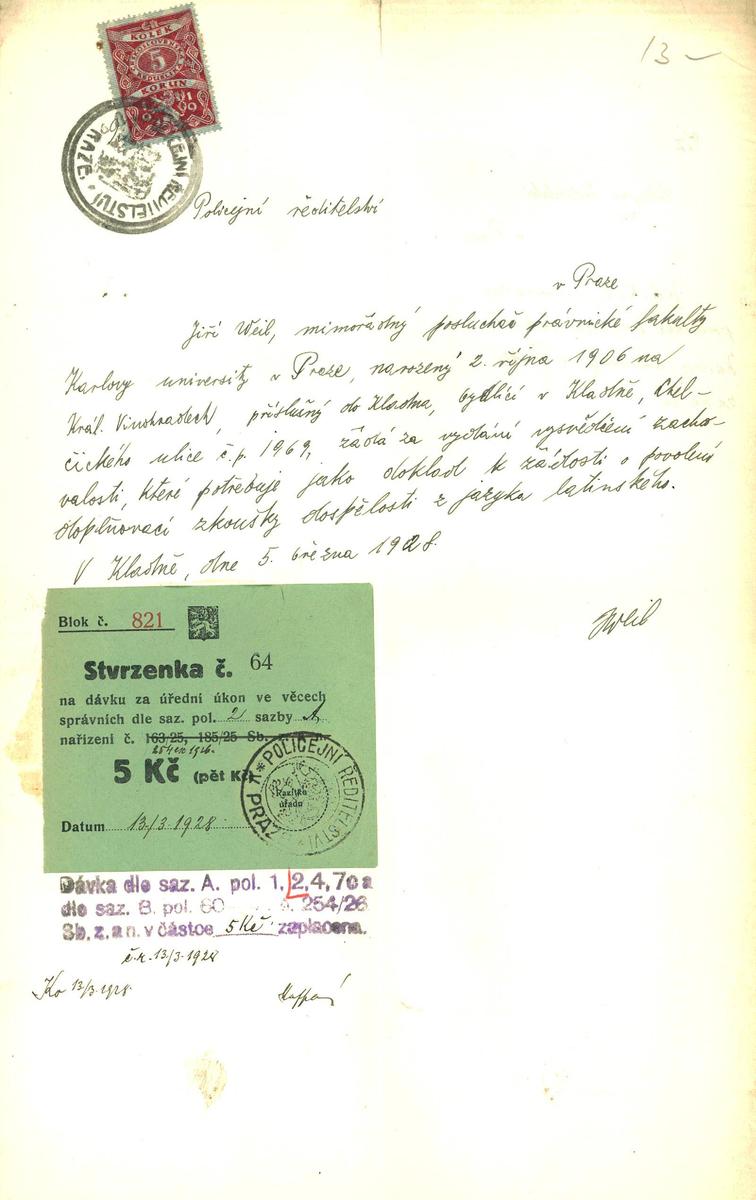 13 –
KOLEK
5
KORUN
POLICEJNÍ ŘEDITELSTVÍ
PRAZE
Policejní ředitelství
v Praze
Jiří Weil, mimořádný posluchač právnické fakulty
Karlovy university v Praze, narozený 2. října 1906 na
Král. Vinohradech, příslušný do Kladna, bydlící v Kladně, Chel-
čického ulice č.p. 1969, žádá za vydání vysvědčení zacho-
valosti, které potřebuje jako doklad k žádosti o povolení
doplňovací zkoušky dospělosti z jazyka latinského.
V Kladně, dne 5. března 1928.
JWeil
Blok č. 821
Stvrzenka č. 64
na dávku za úřední úkon ve věcech
správních dle saz. pol. 2 sazby A
nařízení č. 163/25, 185/25 Sb. z. a n.
254 ex 1926.
5 Kč (pět Kč)
POLICEJNÍ ŘEDITELSTVÍ V PRAZE
Razítko
úřadu
Datum 13/3 1928
Dávka dle saz. A. pol. 1, 2, 4, 7c a
dle saz. B. pol. 60 254/26
Sb. z. a n. v částce 5 Kč zaplacena.
13/3 1928
13/3 1928